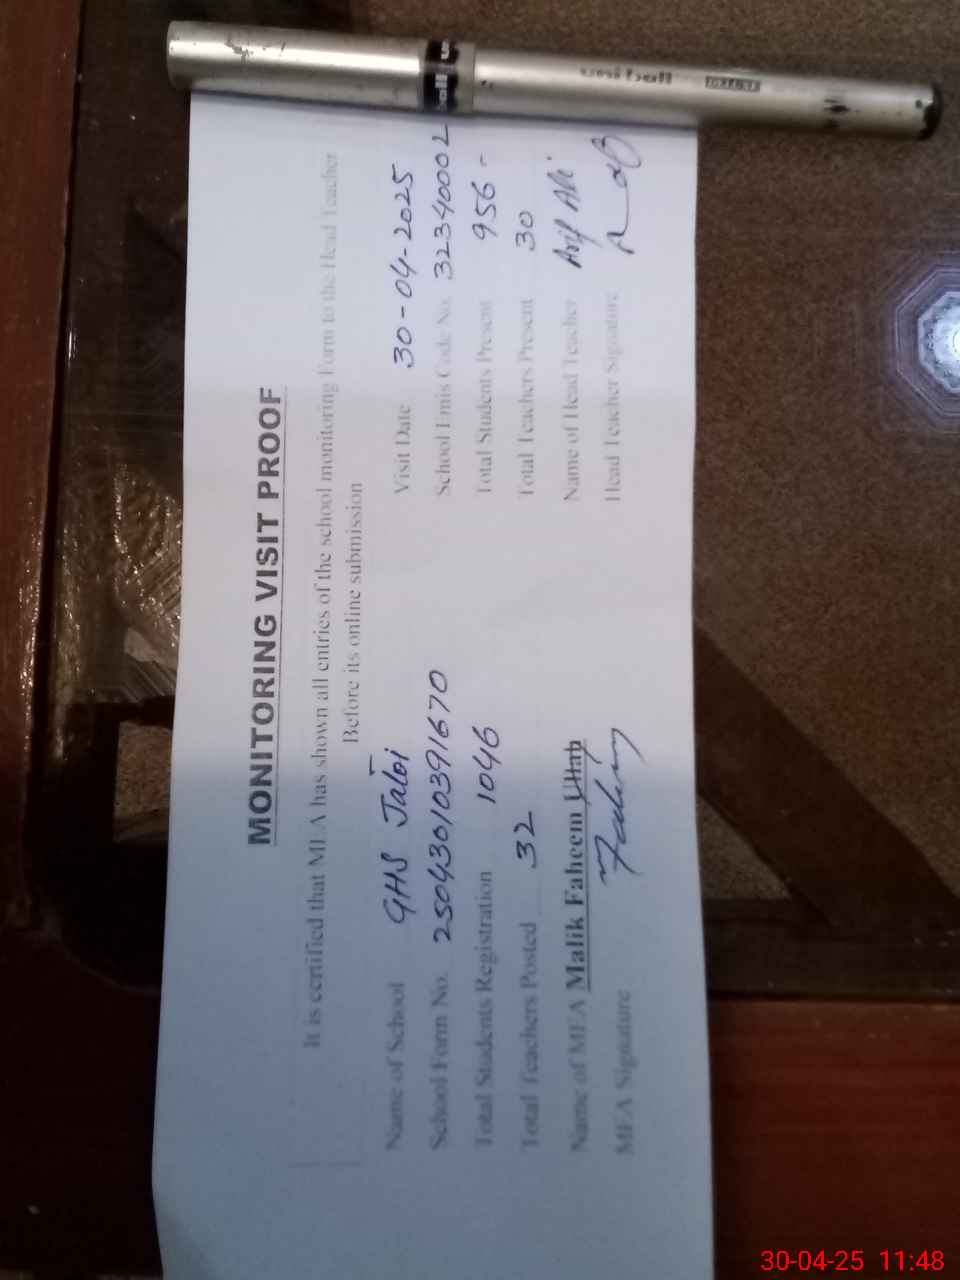 uni ball
MONITORING VISIT PROOF
It is certified that MEA has shown all entries of the school monitoring Form to the Head Teacher
Before its online submission
Name of School GHS Jaloi Visit Date 30-04-2025
School Form No. 2504301039 1670 School Emis Code No. 32340002
Total Students Registration 1046 Total Students Present 956 -
Total Teachers Posted 32 Total Teachers Present 30
Name of MEA Malik Faheem Ullah Name of Head Teacher Arif Ali
MEA Signature Faheem Head Teacher Signature
30-04-25 11:48